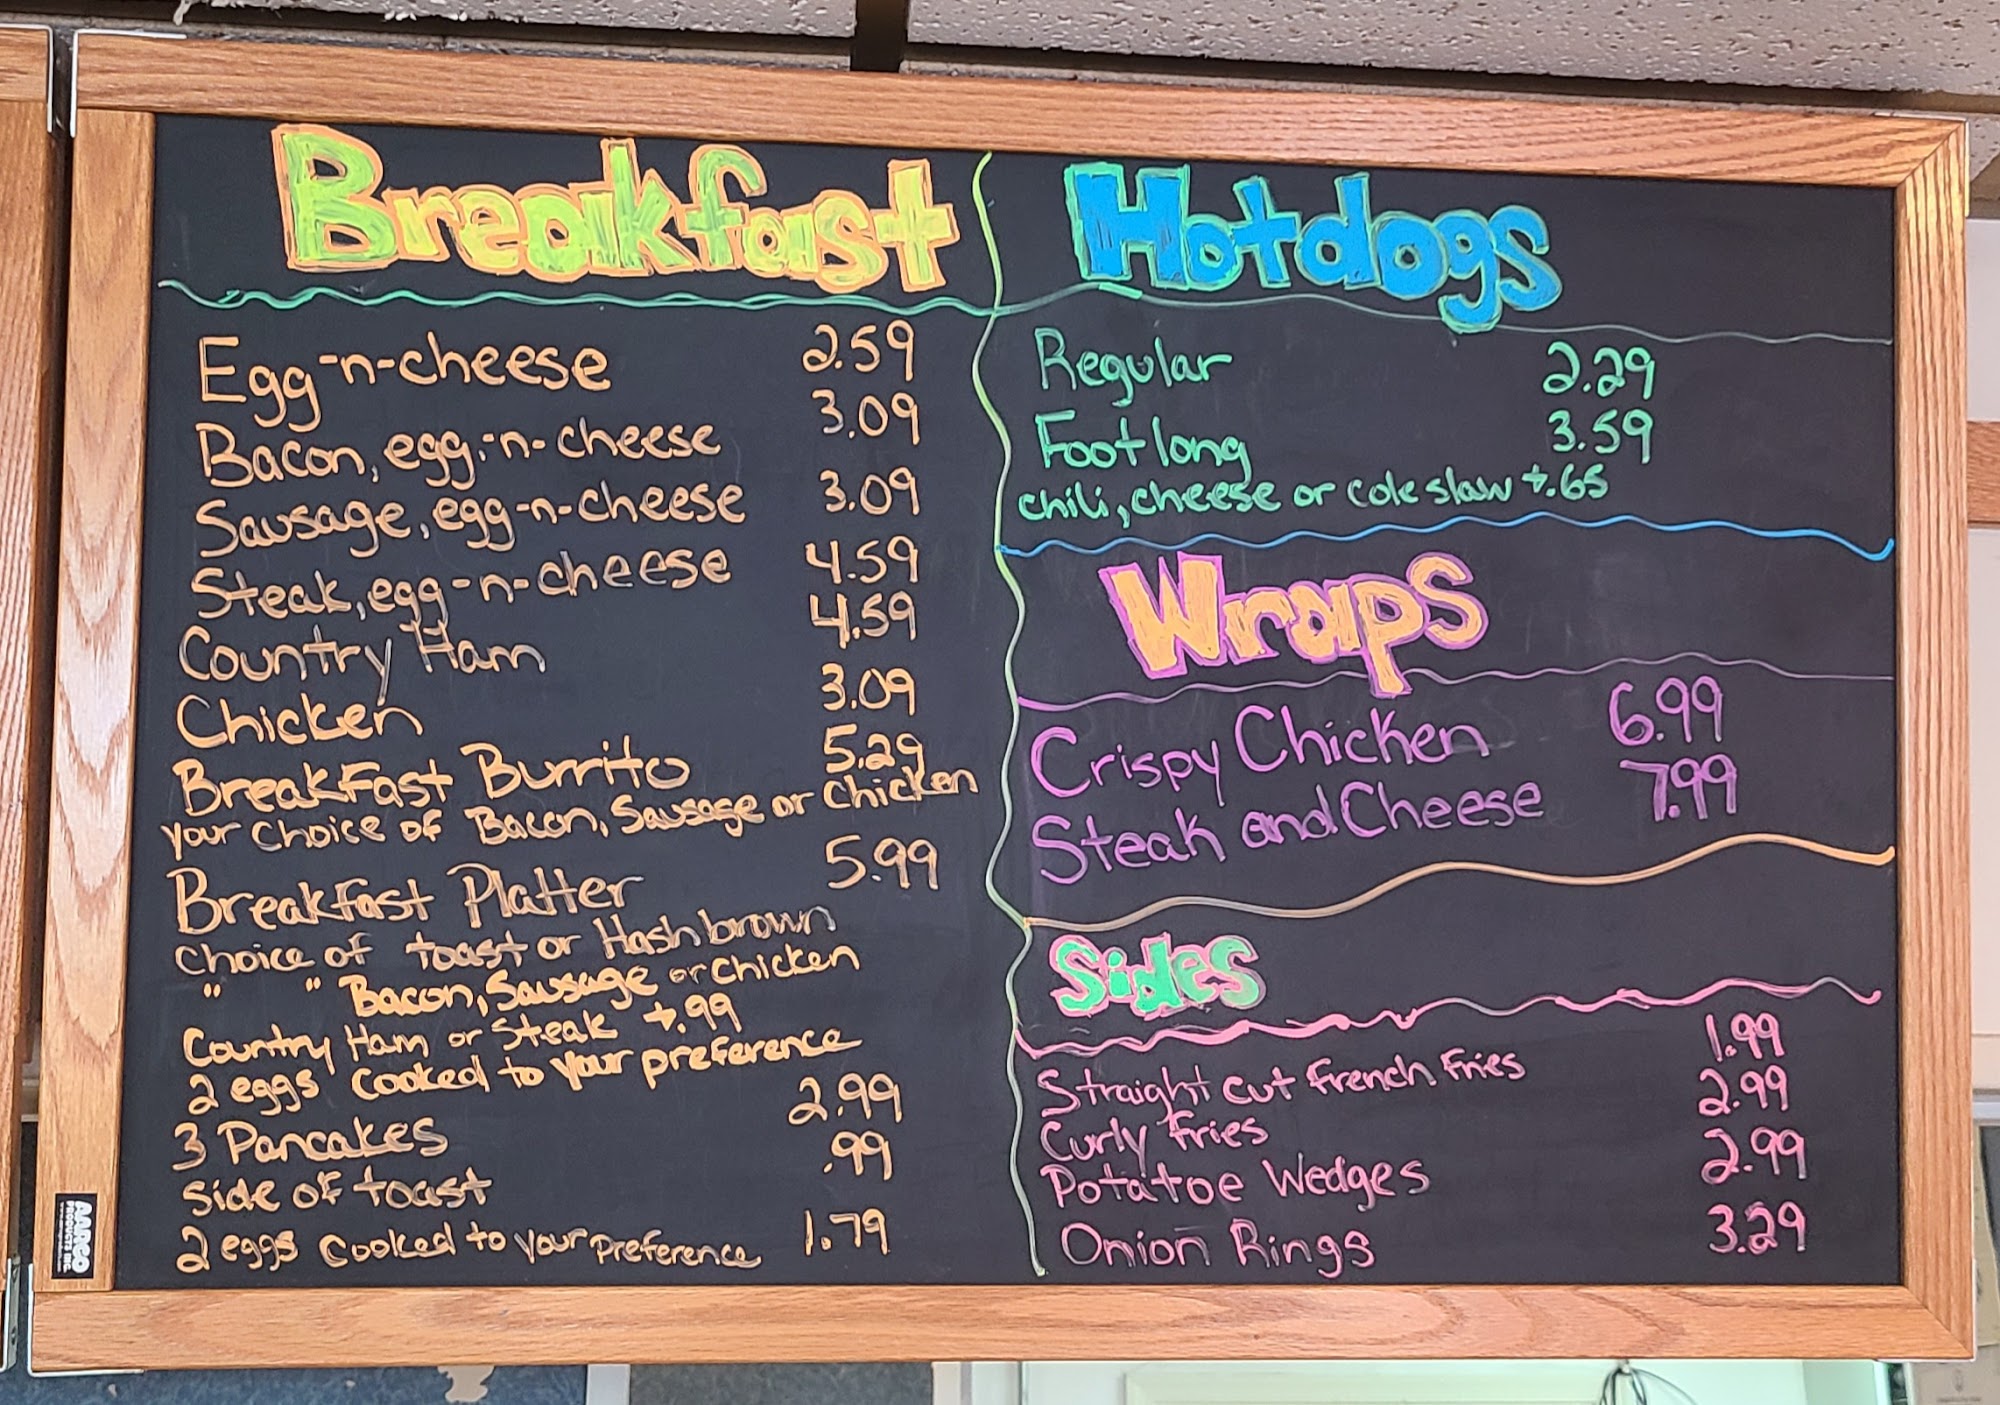 Breakfast
Egg-n-cheese 2.59
Bacon, egg-n-cheese 3.09
Sausage, egg-n-cheese 3.09
Steak, egg-n-cheese 4.59
Country Ham 4.59
Chicken 3.09
Breakfast Burrito 5.29
your choice of Bacon, Sausage or Chicken
Breakfast Platter 5.99
choice of toast or Hashbrown
" " Bacon, Sausage or Chicken
Country Ham or Steak +.99
2 eggs cooked to your preference
3 Pancakes 2.99
side of toast .99
2 eggs cooked to your preference 1.79
Hotdogs
Regular 2.29
Footlong 3.59
chili, cheese or cole slaw +.65
Wraps
Crispy Chicken 6.99
Steak and Cheese 7.99
Sides
Straight cut french fries 1.99
Curly fries 2.99
Potatoe Wedges 2.99
Onion Rings 3.29
AARCO
PRODUCTS INC.